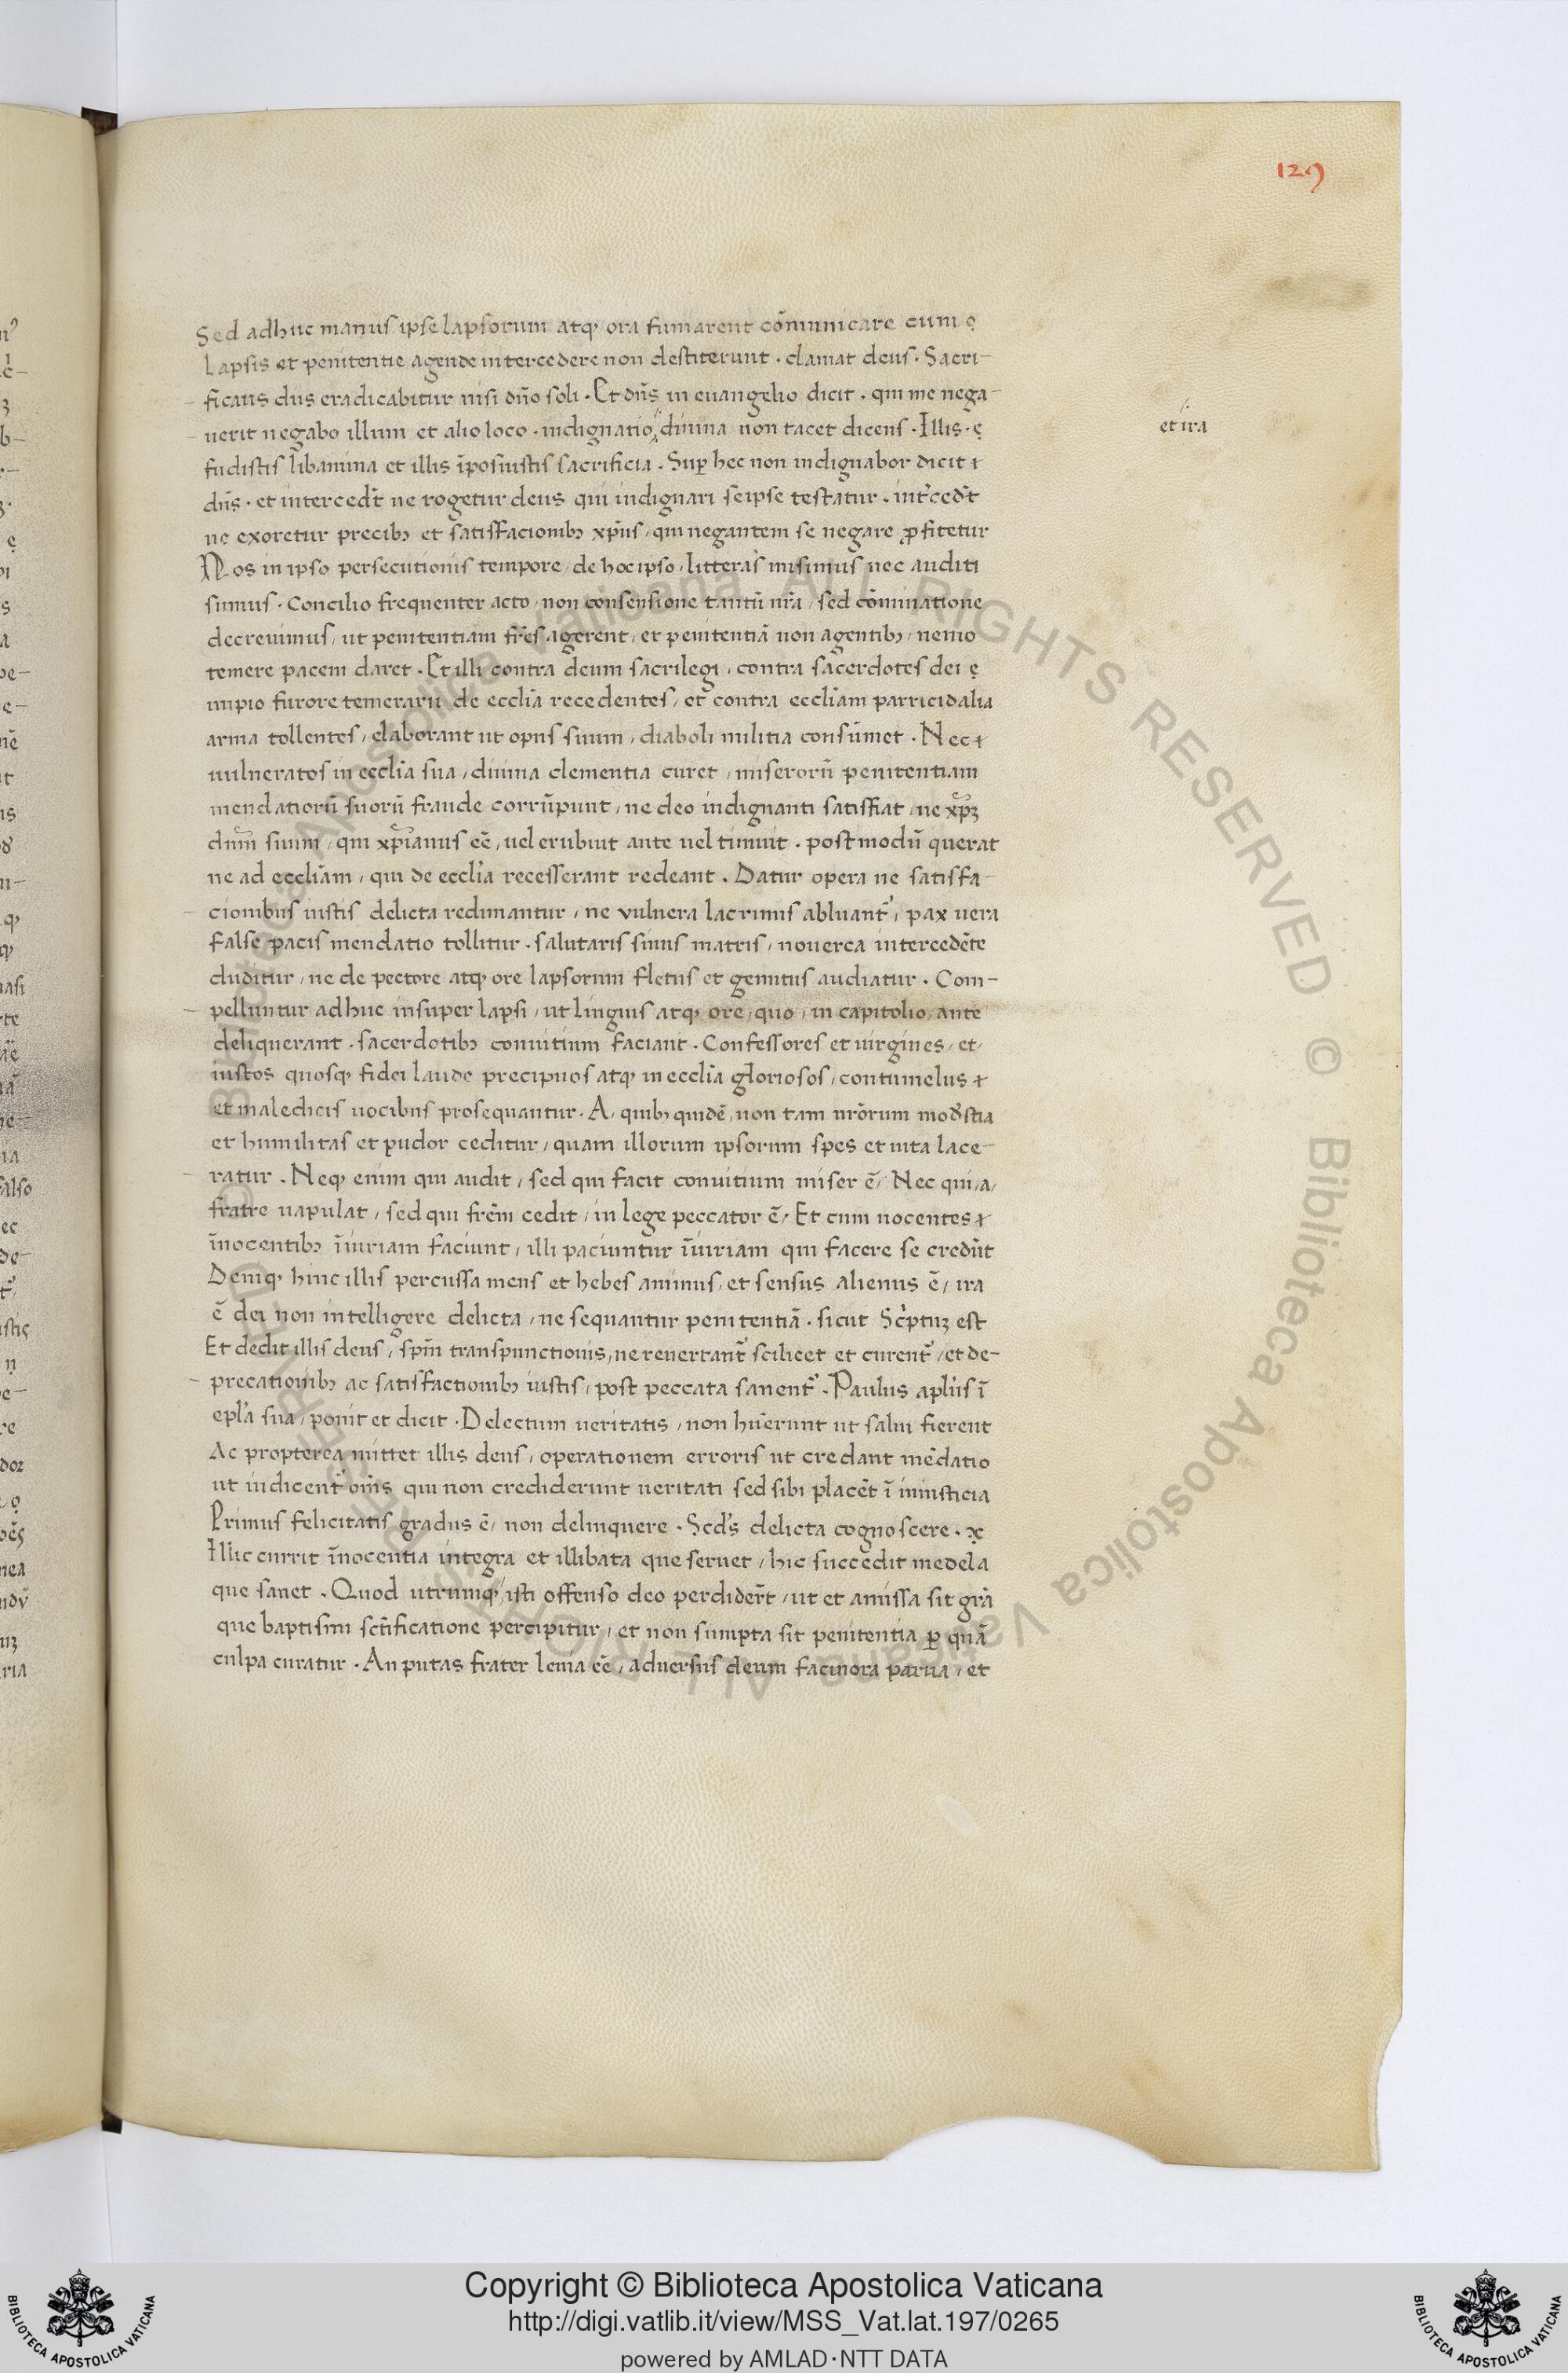 129
Sed adhuc manus ipse lapsorum atqꝫ ora fumarent cōmunicare cum ę
Lapsis et penitentie agende intercedere non destiterunt . clamat deus . Sacri-
ficans diis eradicabitur nisi dn̄o soli . Et dn̄s in euangelio dicit . qui me nega-
uerit negabo illum et alio loco . indignatio diuina non tacet dicens . Illis . ę
et ira
fudistis libamina et illis īposuistis sacrificia . Suꝑ hec non indignabor dicit
dn̄s . et intercedt̄ ne rogetur deus qui indignari seipse testatur . int̄cedt̄
ne exoretur precibꝫ et satisfacionibꝫ xp̄us / qui negantem se negare ꝓfitetur
Nos in ipso persecutionis tempore / de hoc ipso / litteras misimus nec auditi
sumus . Concilio frequenter acto / non consensione tantū nr̄a / sed cōminatione
decreuimus / ut penitentiam fr̄es agerent / et penitentiā non agentibꝫ / nemo
temere pacem daret . Et illi contra deum sacrilegi / contra sacerdotes dei ę
impio furore temerarii de eccl̄ia recedentes / et contra eccl̄iam parricidalia
arma tollentes / elaborant ut opus suum / diaboli militia consūmet . Nec
uulneratos in eccl̄ia sua / diuina clementia curet / miserorū penitentiam
mendatiorū suorū fraude corrūpunt / ne deo indignanti satisfiat / ne xp̄ꝫ
dn̄m suum / qui xp̄ianus eē / uel erubuit ante uel timuit . postmodū querat
ne ad eccl̄iam / qui de eccl̄ia recesserant redeant . Datur opera ne satisfa-
cionibus iustis delicta redimantur / ne vulnera lacrimis abluant̄ / pax uera
false pacis mendatio tollitur . salutaris sinus matris / nouerca intercedēte
cluditur / ne de pectore atqꝫ ore lapsorum fletus et gemitus audiatur . Com-
pelluntur adhuc insuper lapsi / ut linguis atqꝫ ore / quo / in capitolio / ante
deliquerant . sacerdotibꝫ conuitium faciant . Confessores et uirgines / et /
iustos quosqꝫ fidei laude precipuos atqꝫ in eccl̄ia gloriosos / contumeliis
et maledicis uocibus prosequantur . A / quibꝫ quidē / non tam nr̄orum modestia
et humilitas et pudor ceditur / quam illorum ipsorum spes et uita lace-
ratur . Neqꝫ enim qui audit / sed qui facit conuitium miser ē / Nec qui / a /
fratre uapulat / sed qui frēm cedit / in lege peccator ē / Et cum nocentes
īnocentibꝫ īiuriam faciunt / illi paciuntur īiuriam qui facere se credūt
Deniqꝫ hinc illis percussa mens et hebes animus / et sensus alienus ē / ira
ē dei non intelligere delicta / ne sequantur penitentiā . sicut Scp̄tuꝫ est
Et dedit illis deus / spm̄ transpunctionis / ne reuertant̄ scilicet et curent̄ / et de-
precationibꝫ ac satisfactionibꝫ iustis / post peccata sanent̄ . Paulus apl̄us ī
epl̄a sua / ponit et dicit . Delectum ueritatis / non hūerunt ut salui fierent
Ac propterea mittet illis deus / operationem erroris ut credant mēdatio
ut iudicent̄ om̄s qui non crediderunt ueritati sed sibi placēt ī iniusticia
Primus felicitatis gradus ē / non delinquere . Scd̄s delicta cognoscere .
Illic currit īnocentia integra et illibata que seruet / hic succedit medela
que sanet . Quod utrumqꝫ isti offenso deo perdider̄t / ut et amissa sit grā
que baptismi sct̄ificatione percipitur / et non sumpta sit penitentia ꝑ quā
culpa curatur . An putas frater leuia eē / aduersus deum facinora parua / et
Copyright © Biblioteca Apostolica Vaticana
http://digi.vatlib.it/view/MSS_Vat.lat.197/0265
powered by AMLAD·NTT DATA